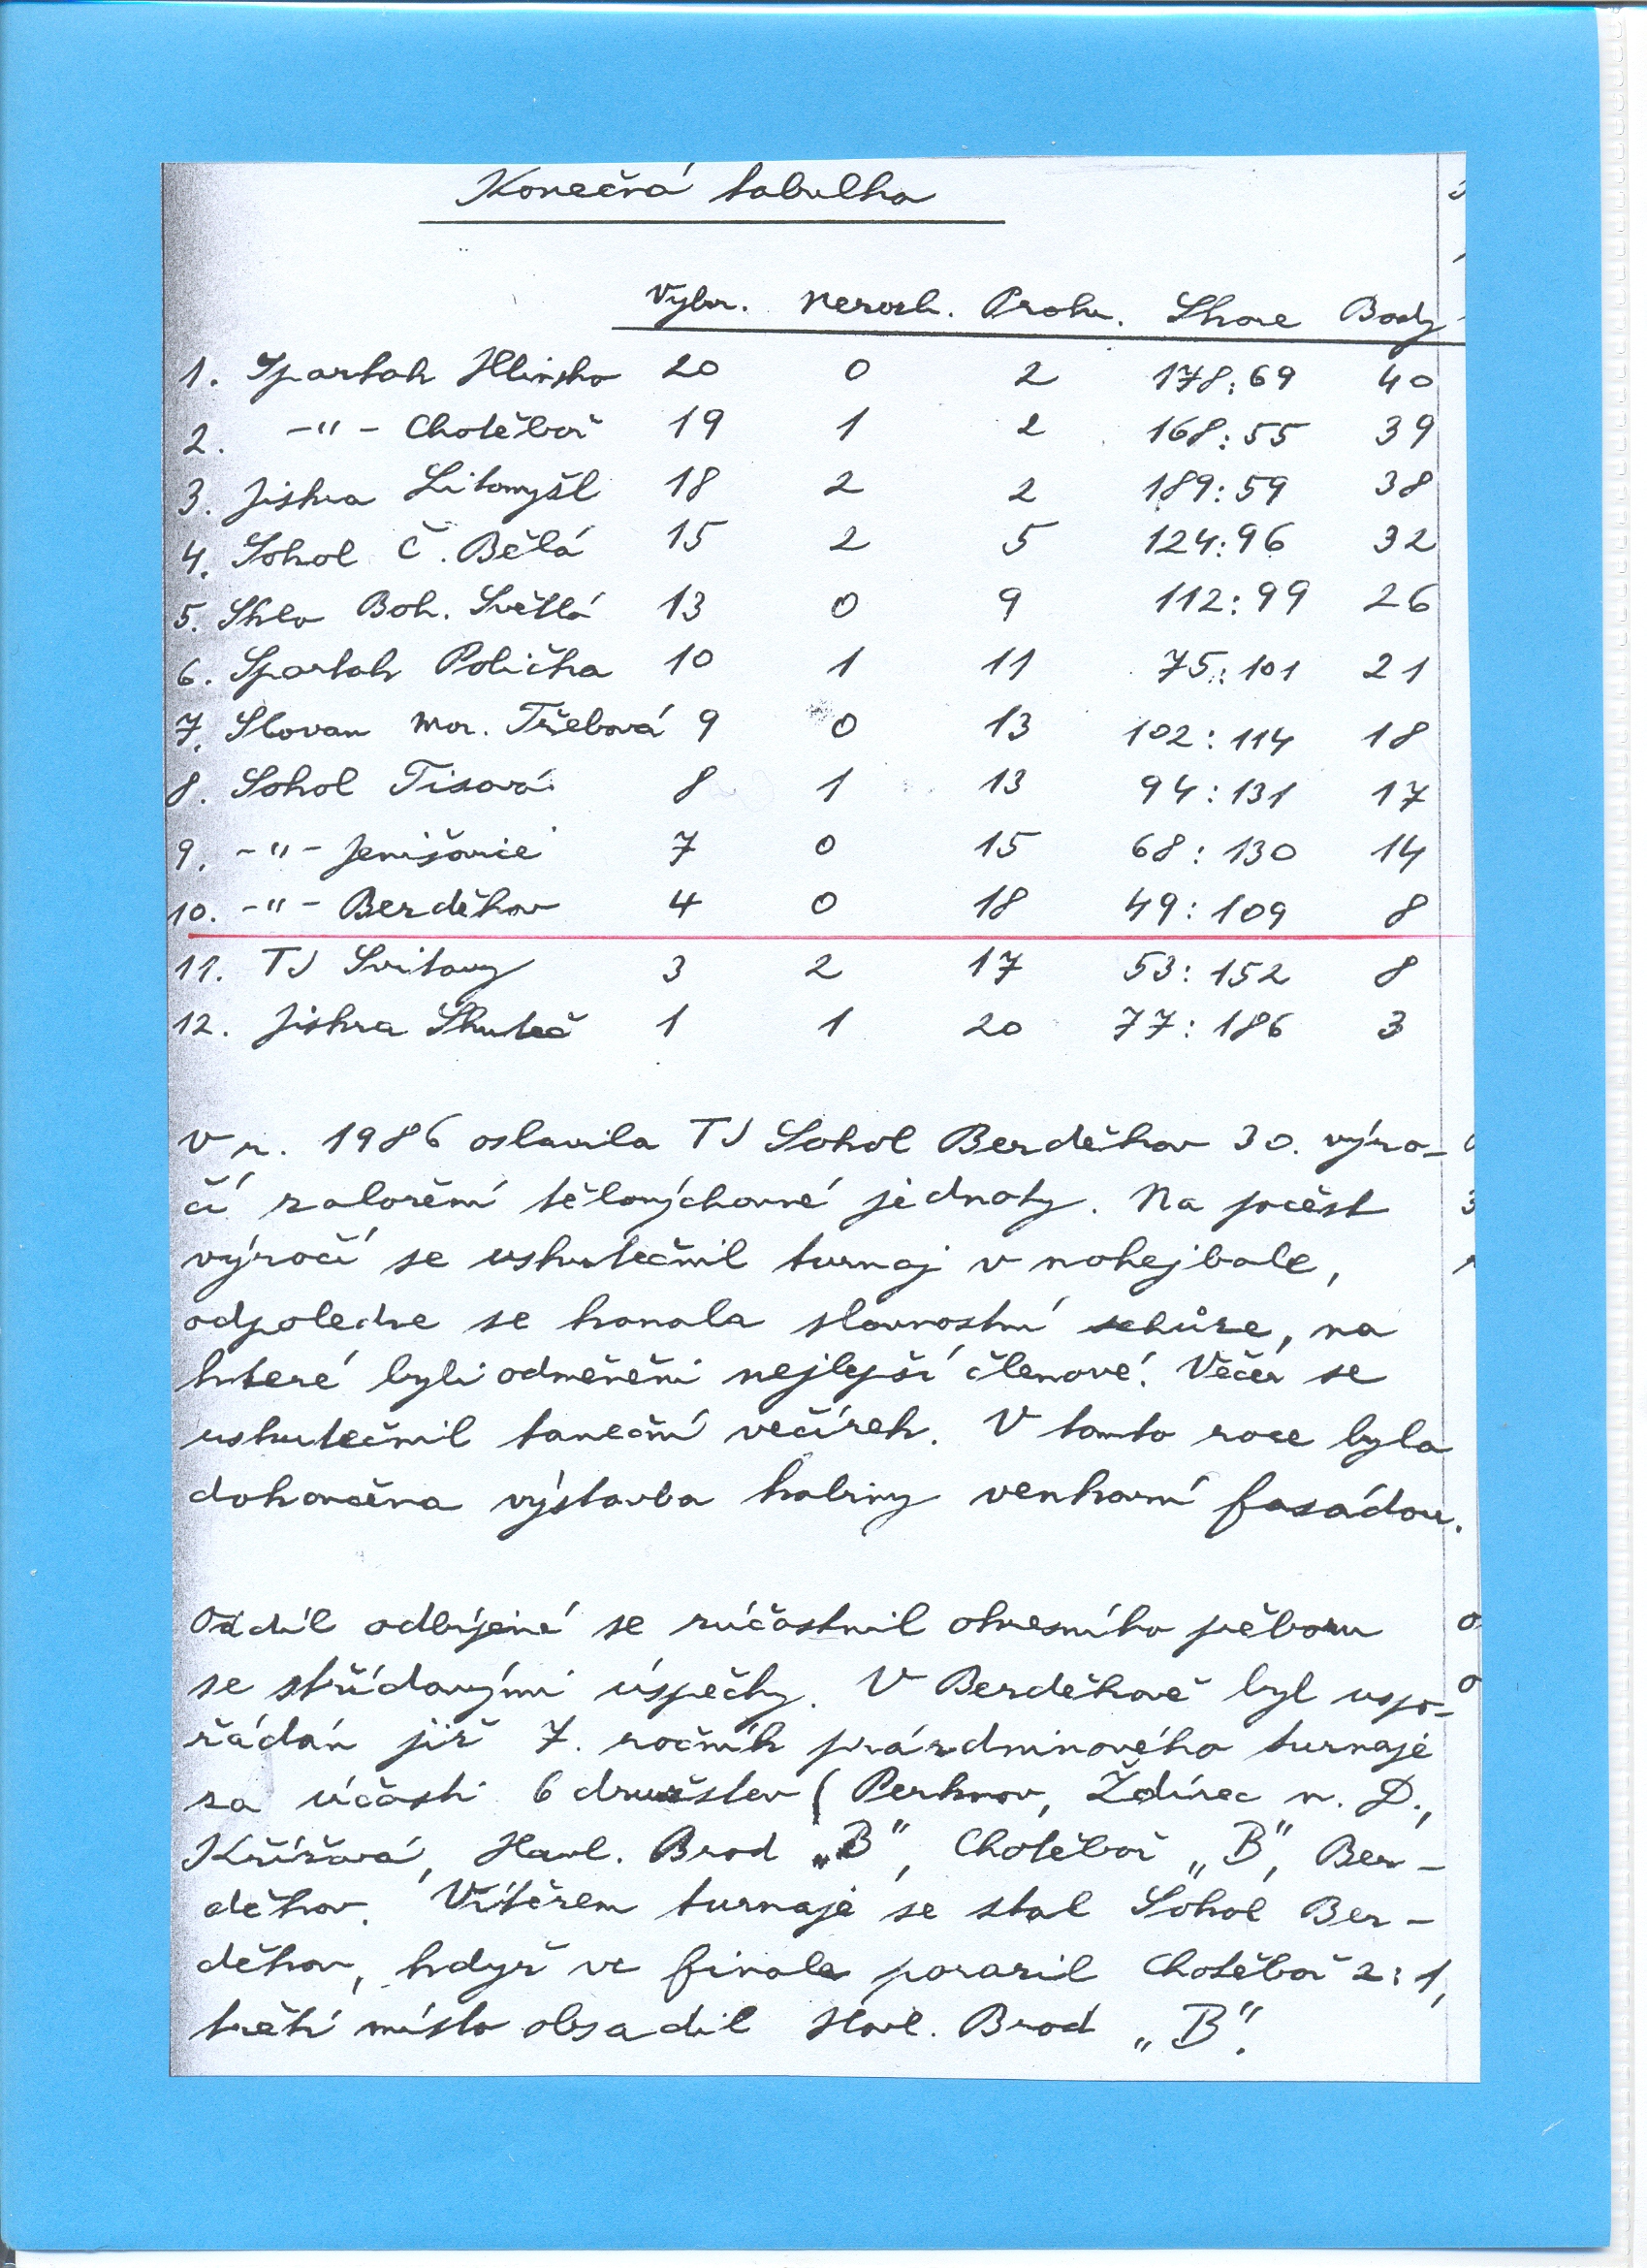 Konečná tabulka
Vyhr. Neroz. Prohr. Skore Body
1. Spartak Hlinsko 20 0 2 178:69 40
2. -"- Chotěboř 19 1 2 168:55 39
3. Jiskra Litomyšl 18 2 2 189:59 38
4. Sokol Č. Bělá 15 2 5 124:96 32
5. Sklo Boh. Světlá 13 0 9 112:99 26
6. Spartak Polička 10 1 11 75:101 21
7. Slovan Mor. Třebová 9 0 13 102:114 18
8. Sokol Tisová 8 1 13 94:131 17
9. -"- Jenišovice 7 0 15 68:130 14
10. -"- Berděkov 4 0 18 49:109 8
11. TJ Svitavy 3 2 17 53:152 8
12. Jiskra Skuteč 1 1 20 77:186 3
V r. 1986 oslavila TJ Sokol Berděkov 30. výro-
čí založení tělovýchovné jednoty. Na počest
výročí se uskutečnil turnaj v nohejbale,
odpoledne se konala slavnostní schůze, na
které byli odměněni nejlepší členové. Večer se
uskutečnil taneční večírek. V tomto roce byla
dokončena výstavba kabiny venkovní fasádou.
Oddíl odbíjené se zúčastnil okresního přeboru
se střídavými úspěchy. V Berděkově byl uspo-
řádán již 7. ročník prázdninového turnaje
za účasti 6 družstev (Perknov, Ždírec n. D.,
Křížová, Havl. Brod „B", Chotěboř „B", Ber-
děkov. Vítězem turnaje se stal Sokol Ber-
děkov, když ve finale porazil Chotěboř 2:1,
třetí místo obsadil Havl. Brod „B".